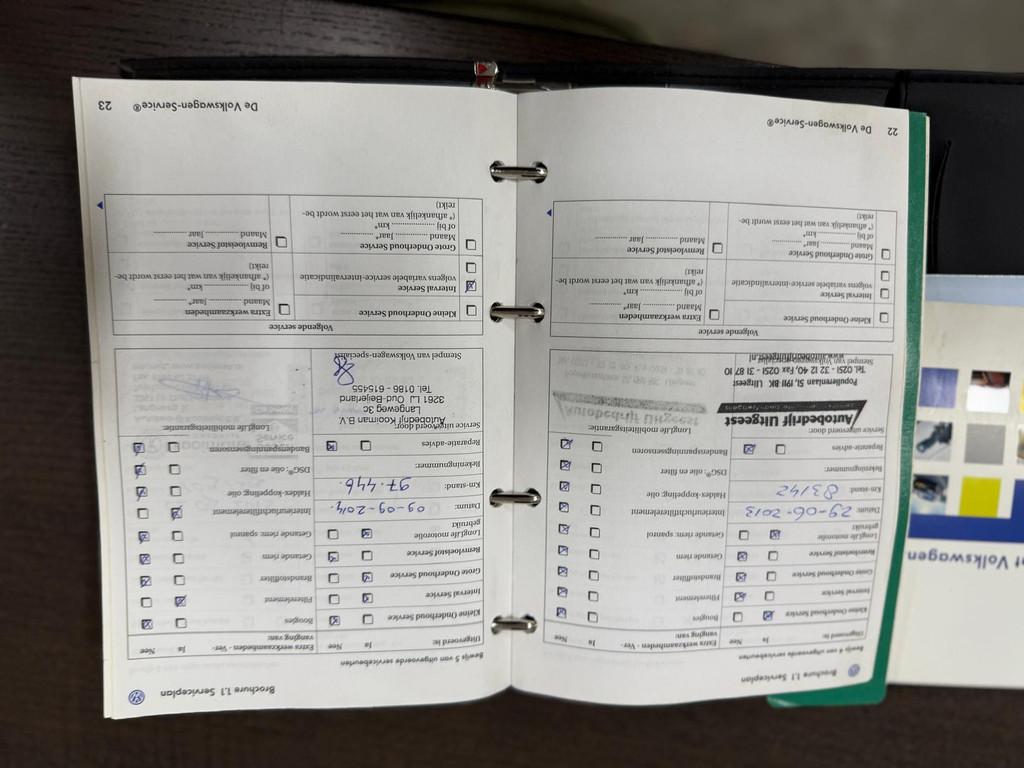 Brochure 1.1 Serviceplan
Bewijs 4 van uitgevoerde servicebeurten
Uitgevoerd is: Ja Nee
Extra werkzaamheden - Ver-
vanging van: Ja Nee
Kleine Onderhoud Service
Bougies
Interval Service
Filterelement
Grote Onderhoud Service
Brandstoffilter
Remvloeistof Service
Getande riem
LongLife motorolie
gebruikt
Getande riem: spanrol
Datum: 29-06-2013
Interieurluchtfilterelement
Km-stand: 83142
Haldex-koppeling: olie
Rekeningnummer:
DSG®: olie en filter
Reparatie-advies
Bandenspanningssensoren
Service uitgevoerd door:
LongLife mobiliteitsgarantie:
Autobedrijf Uitgeest
Populierenlaan 51, 1911 BK Uitgeest
Tel. 0251 - 32 12 40, Fax 0251 - 31 87 10
Stempel van Volkswagen-specialist
www.autobedrijfuitgeest.nl
Volgende service
Kleine Onderhoud Service
Extra werkzaamheden
Interval Service
volgens variabele service-intervalindicatie
Maand ............ Jaar* ............
of bij .................. km*
(* afhankelijk van wat het eerst wordt be-
reikt)
Grote Onderhoud Service
Maand ............ Jaar* ............
of bij .................. km*
(* afhankelijk van wat het eerst wordt be-
reikt)
Remvloeistof Service
Maand ............ Jaar ............
22 De Volkswagen-Service®
Brochure 1.1 Serviceplan
Bewijs 5 van uitgevoerde servicebeurten
Uitgevoerd is: Ja Nee
Extra werkzaamheden - Ver-
vanging van: Ja Nee
Kleine Onderhoud Service
Bougies
Interval Service
Filterelement
Grote Onderhoud Service
Brandstoffilter
Remvloeistof Service
Getande riem
LongLife motorolie
gebruikt
Getande riem: spanrol
Datum: 09-09-2014.
Interieurluchtfilterelement
Km-stand: 97.446.
Haldex-koppeling: olie
Rekeningnummer:
DSG®: olie en filter
Reparatie-advies
Bandenspanningssensoren
Service uitgevoerd door:
LongLife mobiliteitsgarantie:
Autobedrijf Kooman B.V.
Langeweg 3c
3261 LJ Oud-Beijerland
Tel. 0186 - 615455
Stempel van Volkswagen-specialist
Volgende service
Kleine Onderhoud Service
Extra werkzaamheden
Interval Service
volgens variabele service-intervalindicatie
Maand ............ Jaar* ............
of bij .................. km*
(* afhankelijk van wat het eerst wordt be-
reikt)
Grote Onderhoud Service
Maand ............ Jaar* ............
of bij .................. km*
(* afhankelijk van wat het eerst wordt be-
reikt)
Remvloeistof Service
Maand ............ Jaar ............
De Volkswagen-Service® 23
Volkswagen